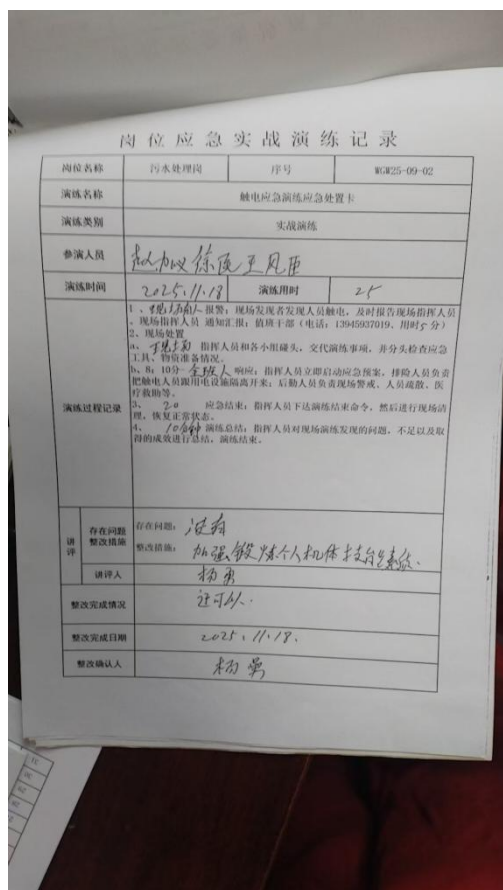 岗位应急实战演练记录
岗位名称 污水处理岗 序号 WGW25-09-02
演练名称 触电应急演练应急处置卡
演练类别 实战演练
参演人员
演练时间 2025.11.18 演练用时 25
演练过程记录
1、 报警：现场发现者发现人员触电，及时报告现场指挥人员
，现场指挥人员 通知汇报：值班干部（电话：13945937019、用时5分）
2、现场处置
a、 指挥人员和各小组碰头，交代演练事项，并分头检查应急
工具、物资准备情况。
b、8：10分 全班人 响应：指挥人员立即启动应急预案，排险人员负责
把触电人员跟用电设施隔离开来；后勤人员负责现场警戒、人员疏散、医
疗救助等。
3、 20 应急结束：指挥人员下达演练结束命令，然后进行现场清
理，恢复正常状态。
4、 10分钟 演练总结：指挥人员对现场演练发现的问题，不足以及取
得的成效进行总结，演练结束。
讲评
存在问题
整改措施
存在问题： 没有
整改措施： 加强锻炼个人机体
讲评人 杨勇
整改完成情况 还可以.
整改完成日期 2025.11.18.
整改确认人 杨勇